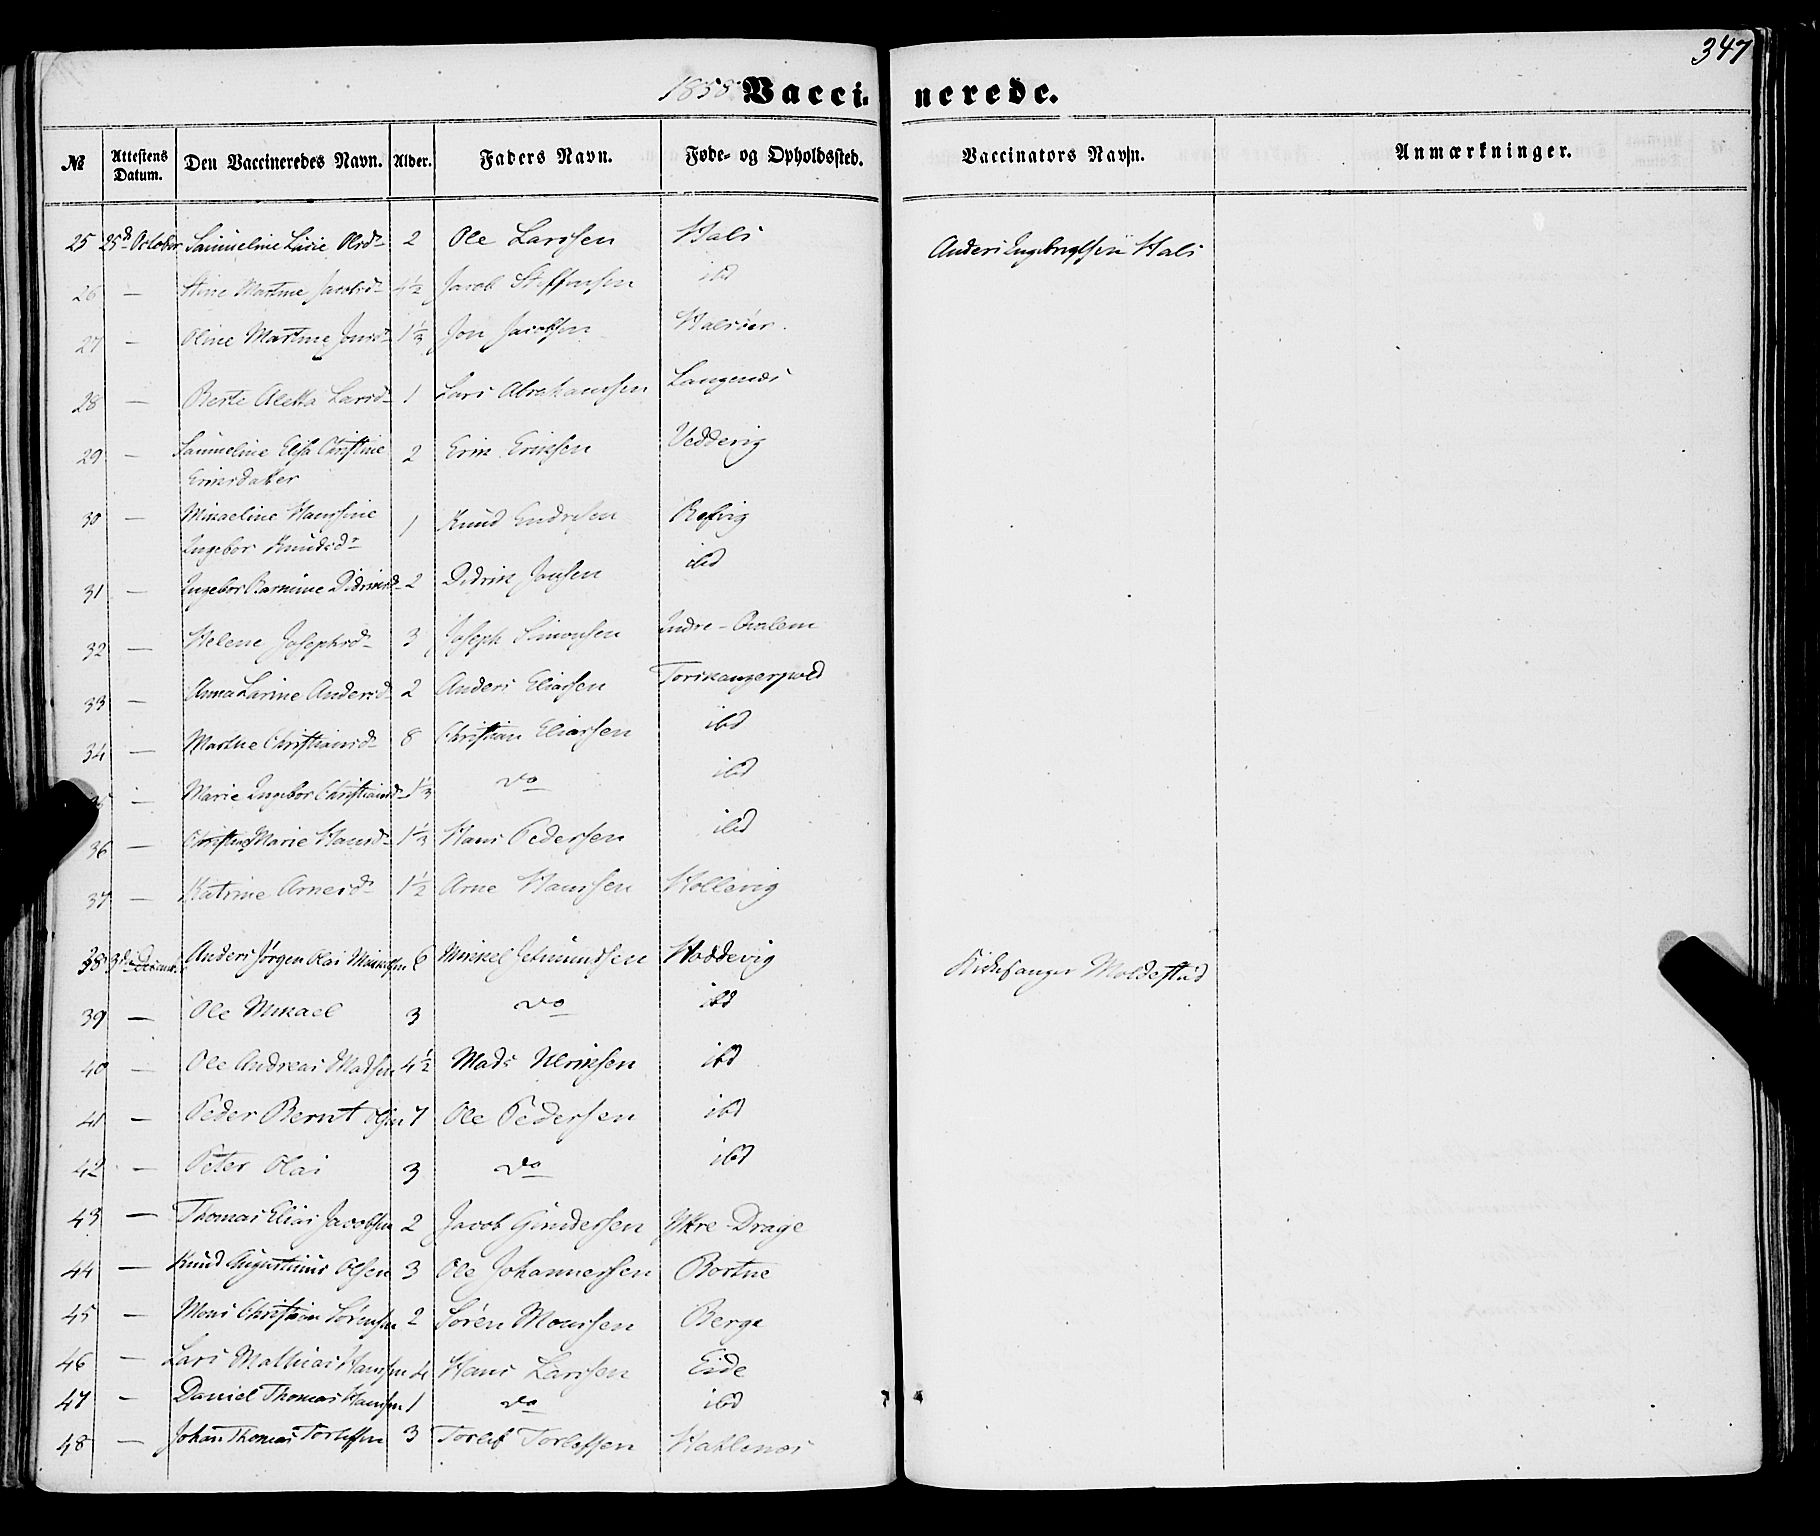 347
1858 Vacci- nerede.
№ Attestens Datum. Den Vaccineredes Navn. Alder. Faders Navn. Føde- og Opholdssted. Vaccinators Navn. Anmærkninger.
25 25de October Samueline Lisie Olsdr 2 Ole Larssen Hals Anders Ingebrigtsen Hals
26 — Stine Martine Jacobsdr 4½ Jacob Steffensen ibd
27 — Oline Martine Jonsdr 1⅓ Jon Jacobsen Halsør.
28 — Berte Aletta Larsdr 1 Lars Abrahamssen Langenæs
29 — Samueline Elisa Christine 2 Erik Eriksen Vedvig
Eriksdatter
30 — Mikaeline Hansine 1 Knud Endresen Refvig
Ingebor Knudsdr
31 — Ingebor Didriksd 2 Didrik Jonsen ibd
32 — Helene Josephsdr 3 Joseph Simonsen Indre-
33 — Anna Larine Andersd 2 Anders Eliassen
34 — Martine Christiansdr 8 Christian Eliassen ibd
35 — Marie Ingebor Christiansd 1⅓ do ibd
36 — Marie Hansdr 1⅓ Hans Pedersen ibd
37 — Katrine Arnesdr 1½ Arne Hanssen Hollevig
38 3die Decemb. Anders Jørgen Olai Mikkelsen 6 Mikkel Jetmundsen Hoddevig Kirkesanger Moldestad
39 — Ole Mikael 3 do ibd
40 — Ole Andreas Madsen 4½ Mads Ulriksen ibd
41 — Peder Bernt Olsen 7 Ole Pedersen ibd
42 — Peter Olai 3 do ibd
43 — Thomas Elias Jacobsen 2 Jacob Gundersen Ytre-Drage
44 — Knud Augustinus Olsen 3 Ole Johannessen Bortne
45 — Mons Christian Sørensen 2 Søren Monssen Berge
46 — Lars Mathias Hanssen 4 Hans Larssen Eide
47 — Daniel Thomas Hanssen 1 do ibd
48 — Johan Thomas Torlefsen 3 Torlef Torlefsen